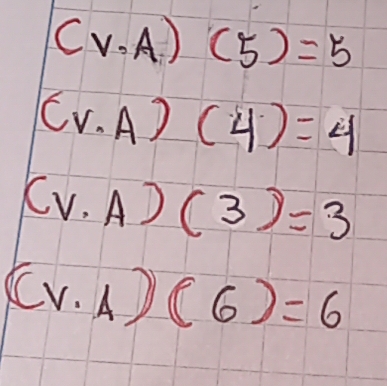 (V.A) (5)=5
(V.A) (4)=4
(V.A) (3)=3
(V.A) (6)=6